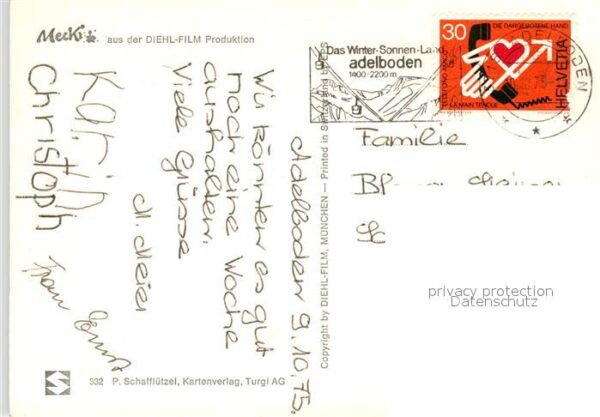 Mecki aus der DIEHL-FILM Produktion
Adelboden 9.10.75.
Wir könnten es gut
noch eine Woche
aushalten.
Viele Grüsse
M. Meier
Karin
Christoph
332 P. Schafflützel, Kartenverlag, Turgi AG
Copyright by DIEHL-FILM, MÜNCHEN — Printed in Switzerland by
Das Winter-Sonnen-Land
adelboden
1400-2200m
30
DIE DARGEBOTENE HAND
LA MAIN TENDUE
HELVETIA
ADELBODEN
Familie
privacy protection
Datenschutz